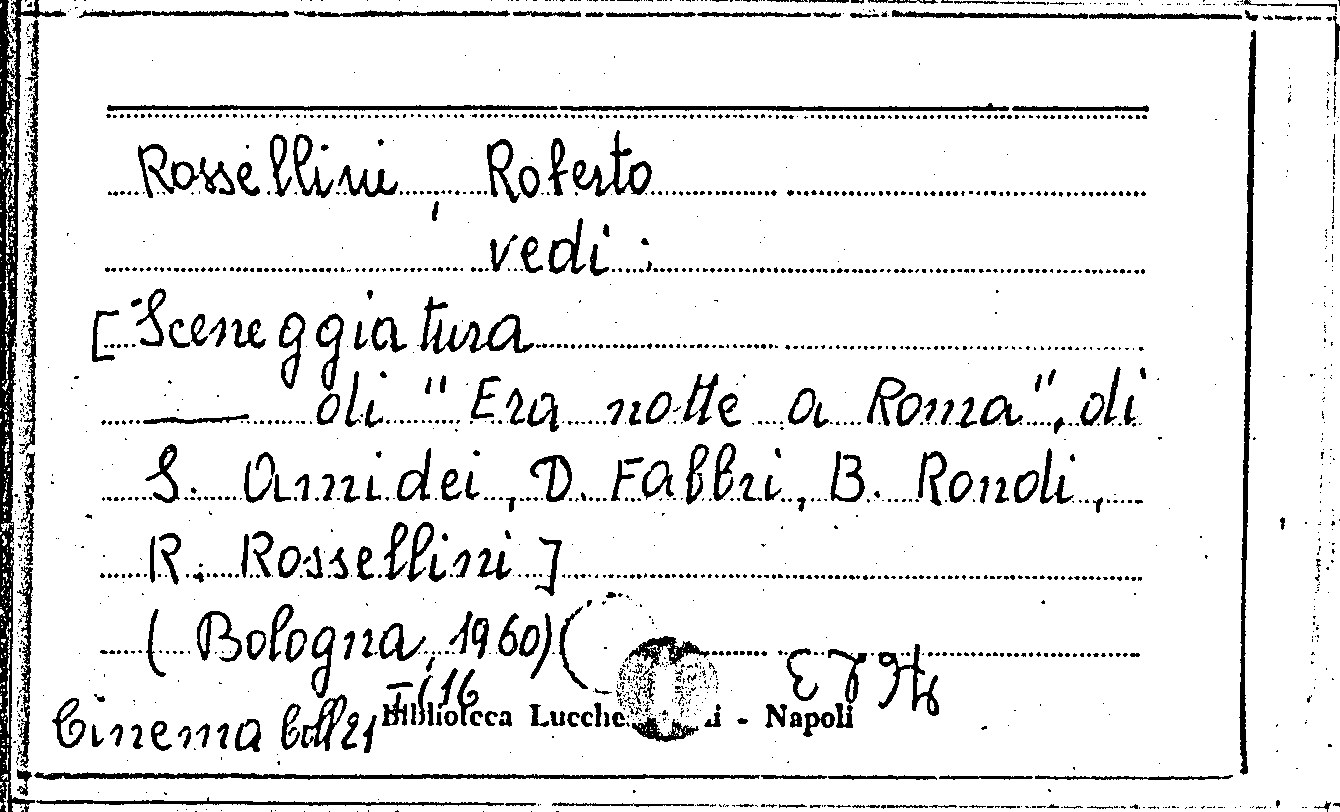 Rossellini, Roberto
vedi:
[Sceneggiatura
di "Era notte a Roma", di
S. Amidei, D. Fabbri, B. Rondi,
R. Rossellini]
(Bologna, 1960)
Cinema Coll 21 I (16
Biblioteca Lucche i - Napoli